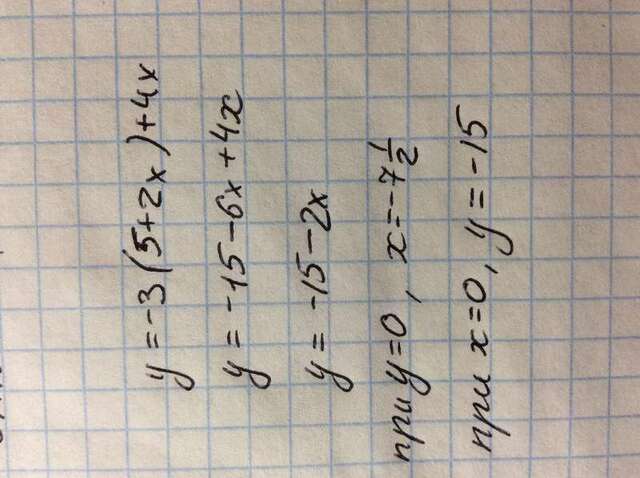 y = -3(5+2x)+4x
y = -15-6x+4x
y = -15-2x
при y=0, x=-7 1/2
при x=0, y=-15